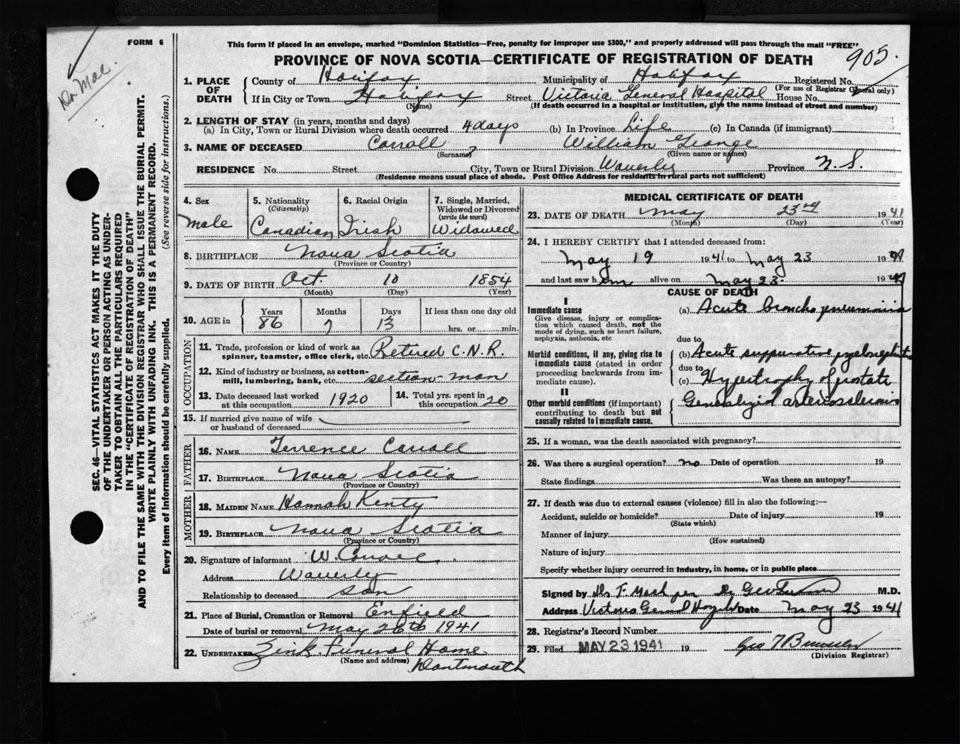 FORM 6
This form if placed in an envelope, marked "Dominion Statistics—Free, penalty for improper use $300," and properly addressed will pass through the mail "FREE"
PROVINCE OF NOVA SCOTIA—CERTIFICATE OF REGISTRATION OF DEATH
905.
1. PLACE OF DEATH County of Halifax Municipality of Halifax Registered No.
(For use of Registrar General only)
If in City or Town Halifax Street Victoria General Hospital House No.
(Name) (If death occurred in a hospital or institution, give the name instead of street and number)
2. LENGTH OF STAY (in years, months and days)
(a) In City, Town or Rural Division where death occurred 4 days (b) In Province Life (c) In Canada (if immigrant)
3. NAME OF DECEASED Carroll William George
(Surname) (Given name or names)
RESIDENCE No. Street City, Town or Rural Division Waverly Province N. S.
(Residence means usual place of abode. Post Office Address for residents in rural parts not sufficient)
4. Sex Male
5. Nationality (Citizenship) Canadian
6. Racial Origin Irish
7. Single, Married, Widowed or Divorced (write the word) Widowed
8. BIRTHPLACE Nova Scotia
(Province or Country)
9. DATE OF BIRTH Oct. 10 1854
(Month) (Day) (Year)
10. AGE in Years 86 Months 7 Days 13 If less than one day old hrs. or min.
OCCUPATION
11. Trade, profession or kind of work as spinner, teamster, office clerk, etc. Retired C.N.R.
12. Kind of industry or business, as cotton-mill, lumbering, bank, etc. section man
13. Date deceased last worked at this occupation 1920
14. Total yrs. spent in this occupation 20
15. If married give name of wife or husband of deceased
FATHER
16. NAME Terrence Carroll
17. BIRTHPLACE Nova Scotia
(Province or Country)
MOTHER
18. MAIDEN NAME Hannah Kenty
19. BIRTHPLACE Nova Scotia
(Province or Country)
20. Signature of informant W. Carroll
Address Waverly
Relationship to deceased son
21. Place of Burial, Cremation or Removal Enfield
Date of burial or removal May 26th 1941
22. UNDERTAKER Zink Funeral Home
(Name and address) Dartmouth
MEDICAL CERTIFICATE OF DEATH
23. DATE OF DEATH May 23rd 1941
(Month) (Day) (Year)
24. I HEREBY CERTIFY that I attended deceased from:
May 19 1941 to May 23 1941
and last saw him alive on May 23 1941
CAUSE OF DEATH
I
Immediate cause
Give disease, injury or complication which caused death, not the mode of dying, such as heart failure, asphyxia, asthenia, etc
(a) Acute broncho pneumonia
due to
Morbid conditions, if any, giving rise to immediate cause (stated in order proceeding backwards from immediate cause).
(b) Acute suppurative pyelonephritis
due to
(c) Hypertrophy of prostate
II
Other morbid conditions (if important) contributing to death but not causally related to immediate cause.
Generalized arteriosclerosis
25. If a woman, was the death associated with pregnancy?
26. Was there a surgical operation? no Date of operation 19
State findings Was there an autopsy?
27. If death was due to external causes (violence) fill in also the following:—
Accident, suicide or homicide? Date of injury 19
(State which)
Manner of injury
(How sustained)
Nature of injury
Specify whether injury occurred in industry, in home, or in public place
Signed by M.D.
Address Victoria General Hospital Date May 23 1941
28. Registrar's Record Number
29. Filed MAY 23 1941 19
(Division Registrar)
SEC. 46—VITAL STATISTICS ACT MAKES IT THE DUTY
OF THE UNDERTAKER OR PERSON ACTING AS UNDERTAKER TO OBTAIN ALL THE PARTICULARS REQUIRED
IN THE "CERTIFICATE OF REGISTRATION OF DEATH"
AND TO FILE THE SAME WITH THE DIVISION REGISTRAR WHO SHALL ISSUE THE BURIAL PERMIT.
WRITE PLAINLY WITH UNFADING INK. THIS IS A PERMANENT RECORD.
Every item of information should be carefully supplied. (See reverse side for instructions.)